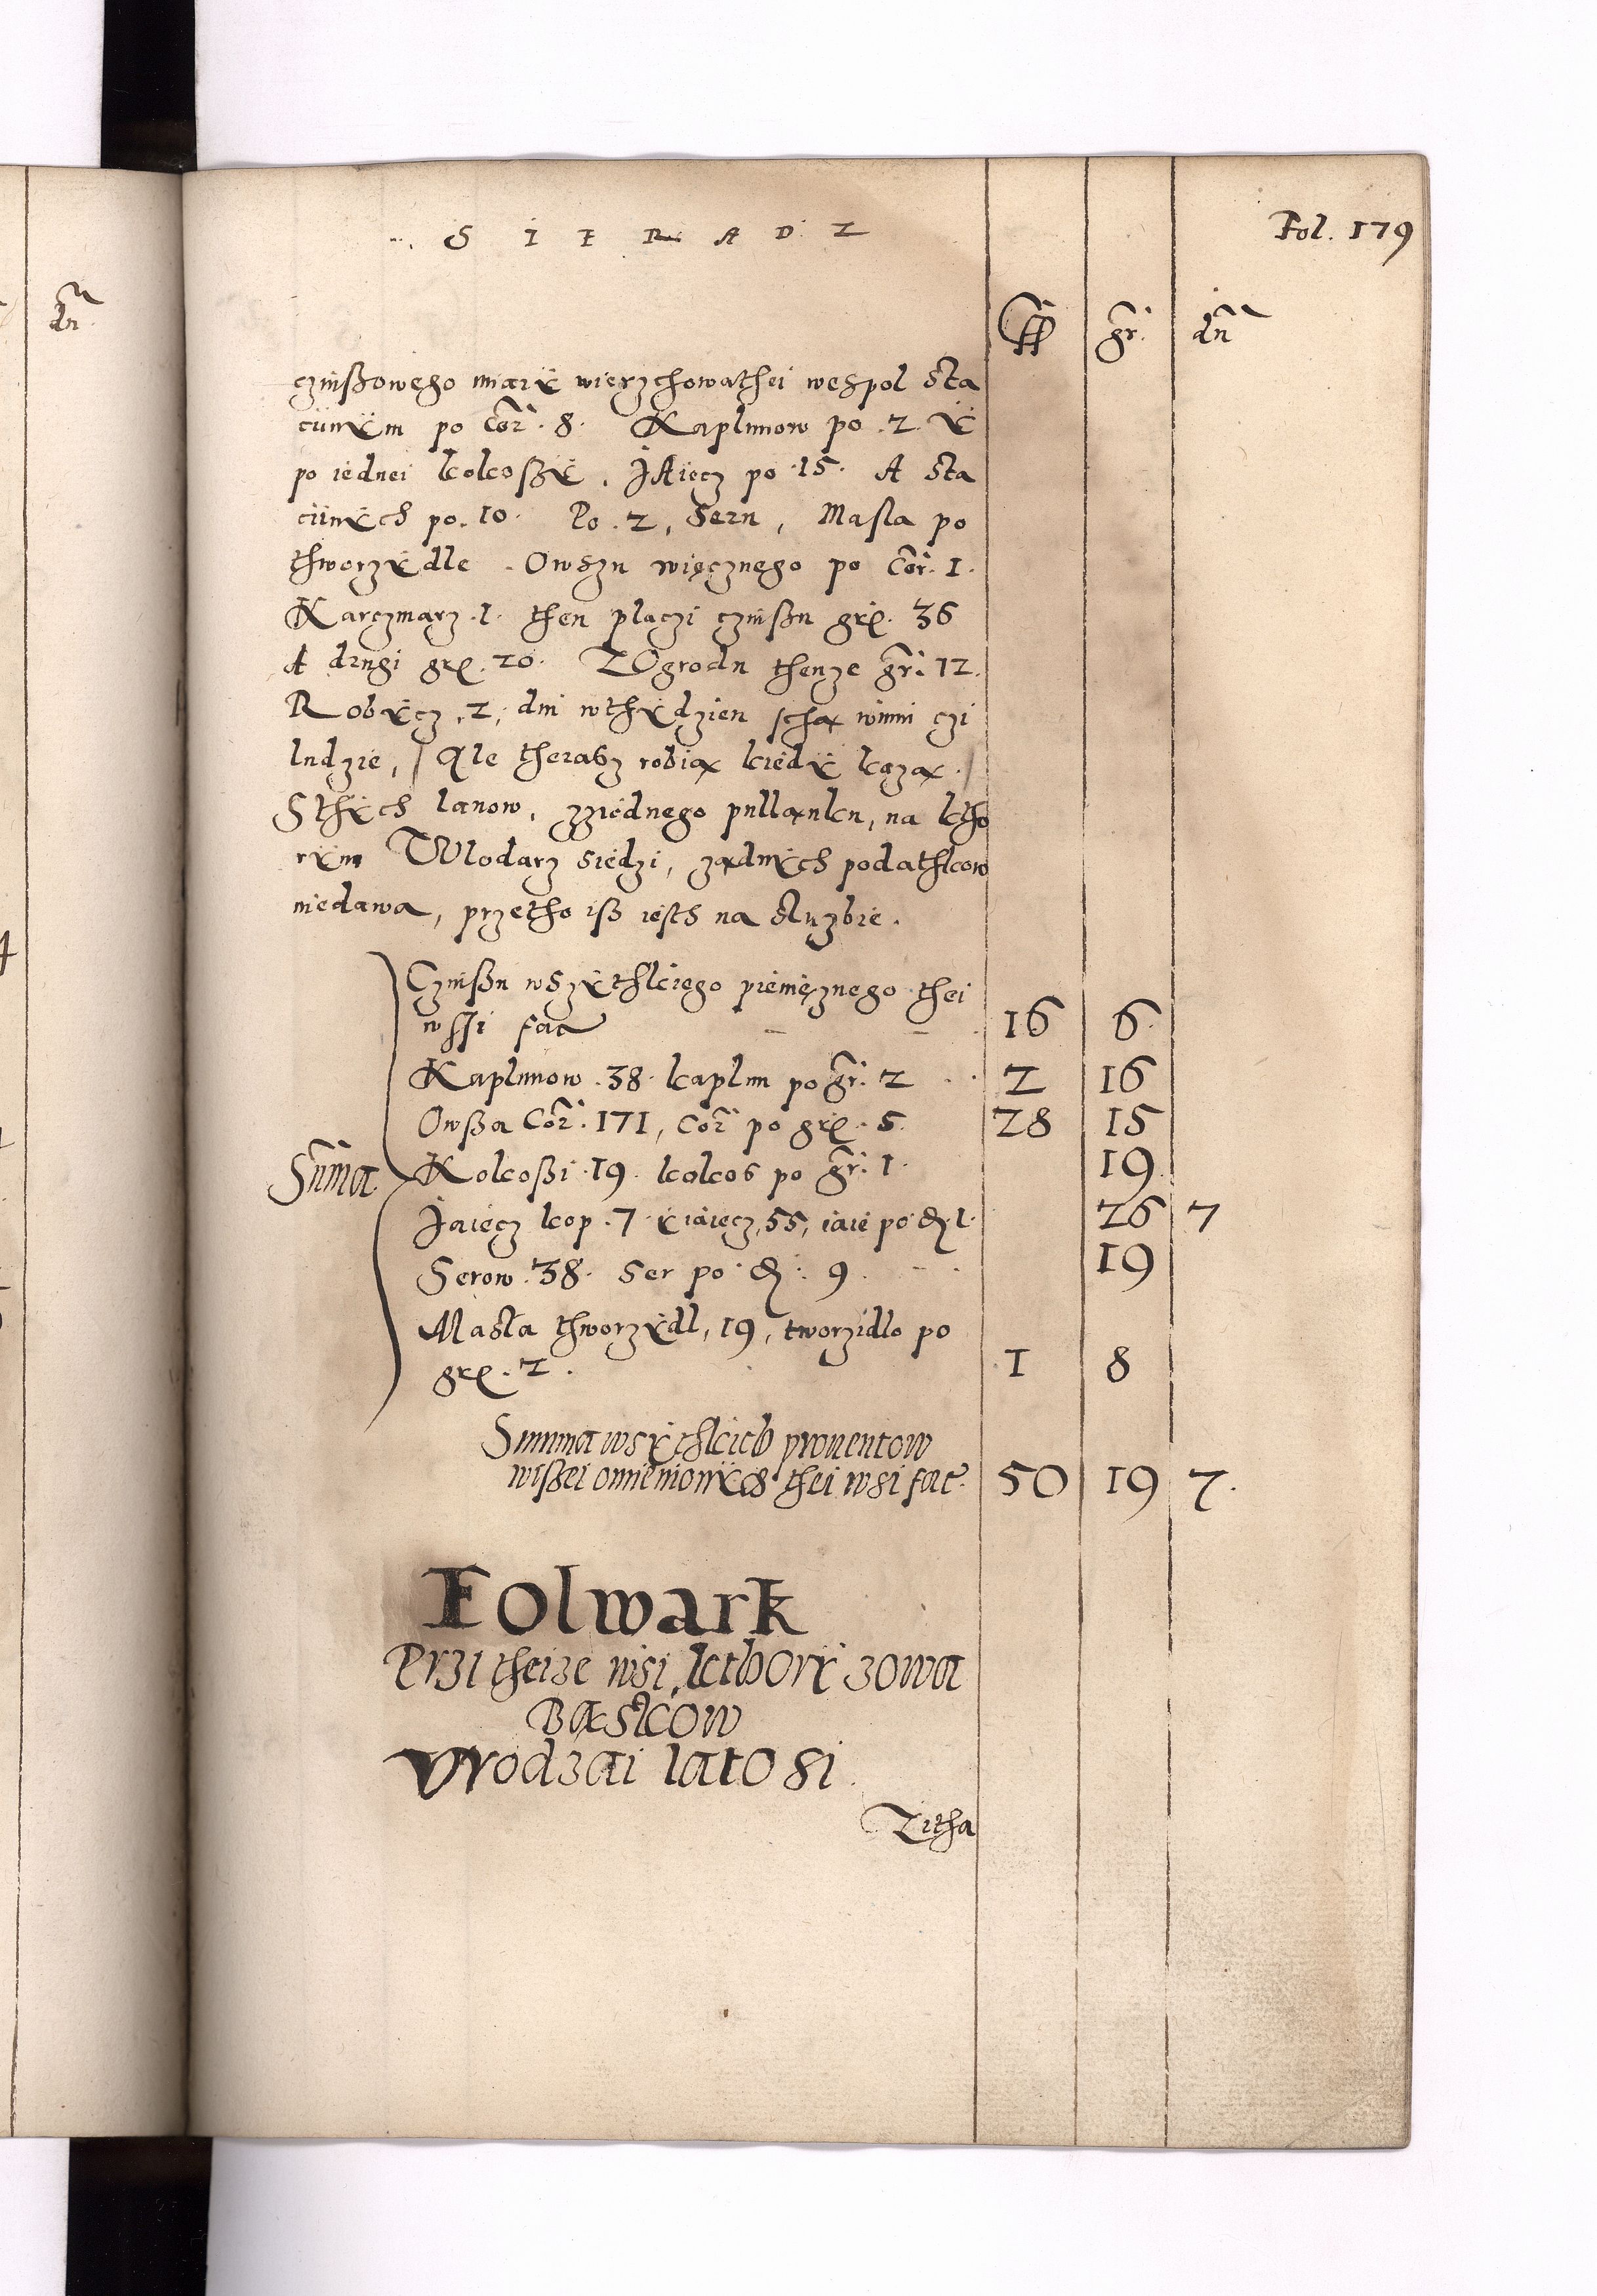 SIERADZ
Fol. 179
ff gr. dn
czinßowego miarÿ wierzchowathei wespol sta
ciinÿm po Cor. 8. Kaplunow po .2. ÿ
po iednei kokoßÿ. JAiecz po .15. A sta
ciinÿch po .10. Po .2, Seru, Masla po
thworzÿdle. Owszu więcznego po Cor. 1.
Karczmarz .1. then placzi czinßu gr. 36
A drugi gr. 20. ZOgrodu thenze gr. 12.
Robÿcz .2, dni wthÿdzien scha winni czi
ludzie, / Ale therasz robią kiedÿ kązą. /
Sthÿch lanow, zziednego pullanku, na ktho
rÿm Wlodarz siedzi, żadnÿch podathkow
niedawa, przetho iß iesth na službie.
Czinßu wszÿthkiego pieniężnego thei
wssi fac 16 6
Kaplunow .38. kaplun po gr. 2 2 16
Owßa Cor. 171, Cor po gr. 5. 28 15
Suma Kokoßi .19. kokos po gr. 1. 19
Jaiecz kop .7. ÿ iaiecz, 55, iaie po d. 1. 26 7
Serow .38. Ser po d. 9. 19
Masla thworzÿdl, 19, tworzidlo po
gr. 2. 1 8
Summa wsÿthkich prouentow
wißei omienionÿch thei wsi fac. 50 19 7.
Folwark
Przi theize wsi, kthorÿ zowa
Bąskow
Vrodzai latosi
Zitha
dn